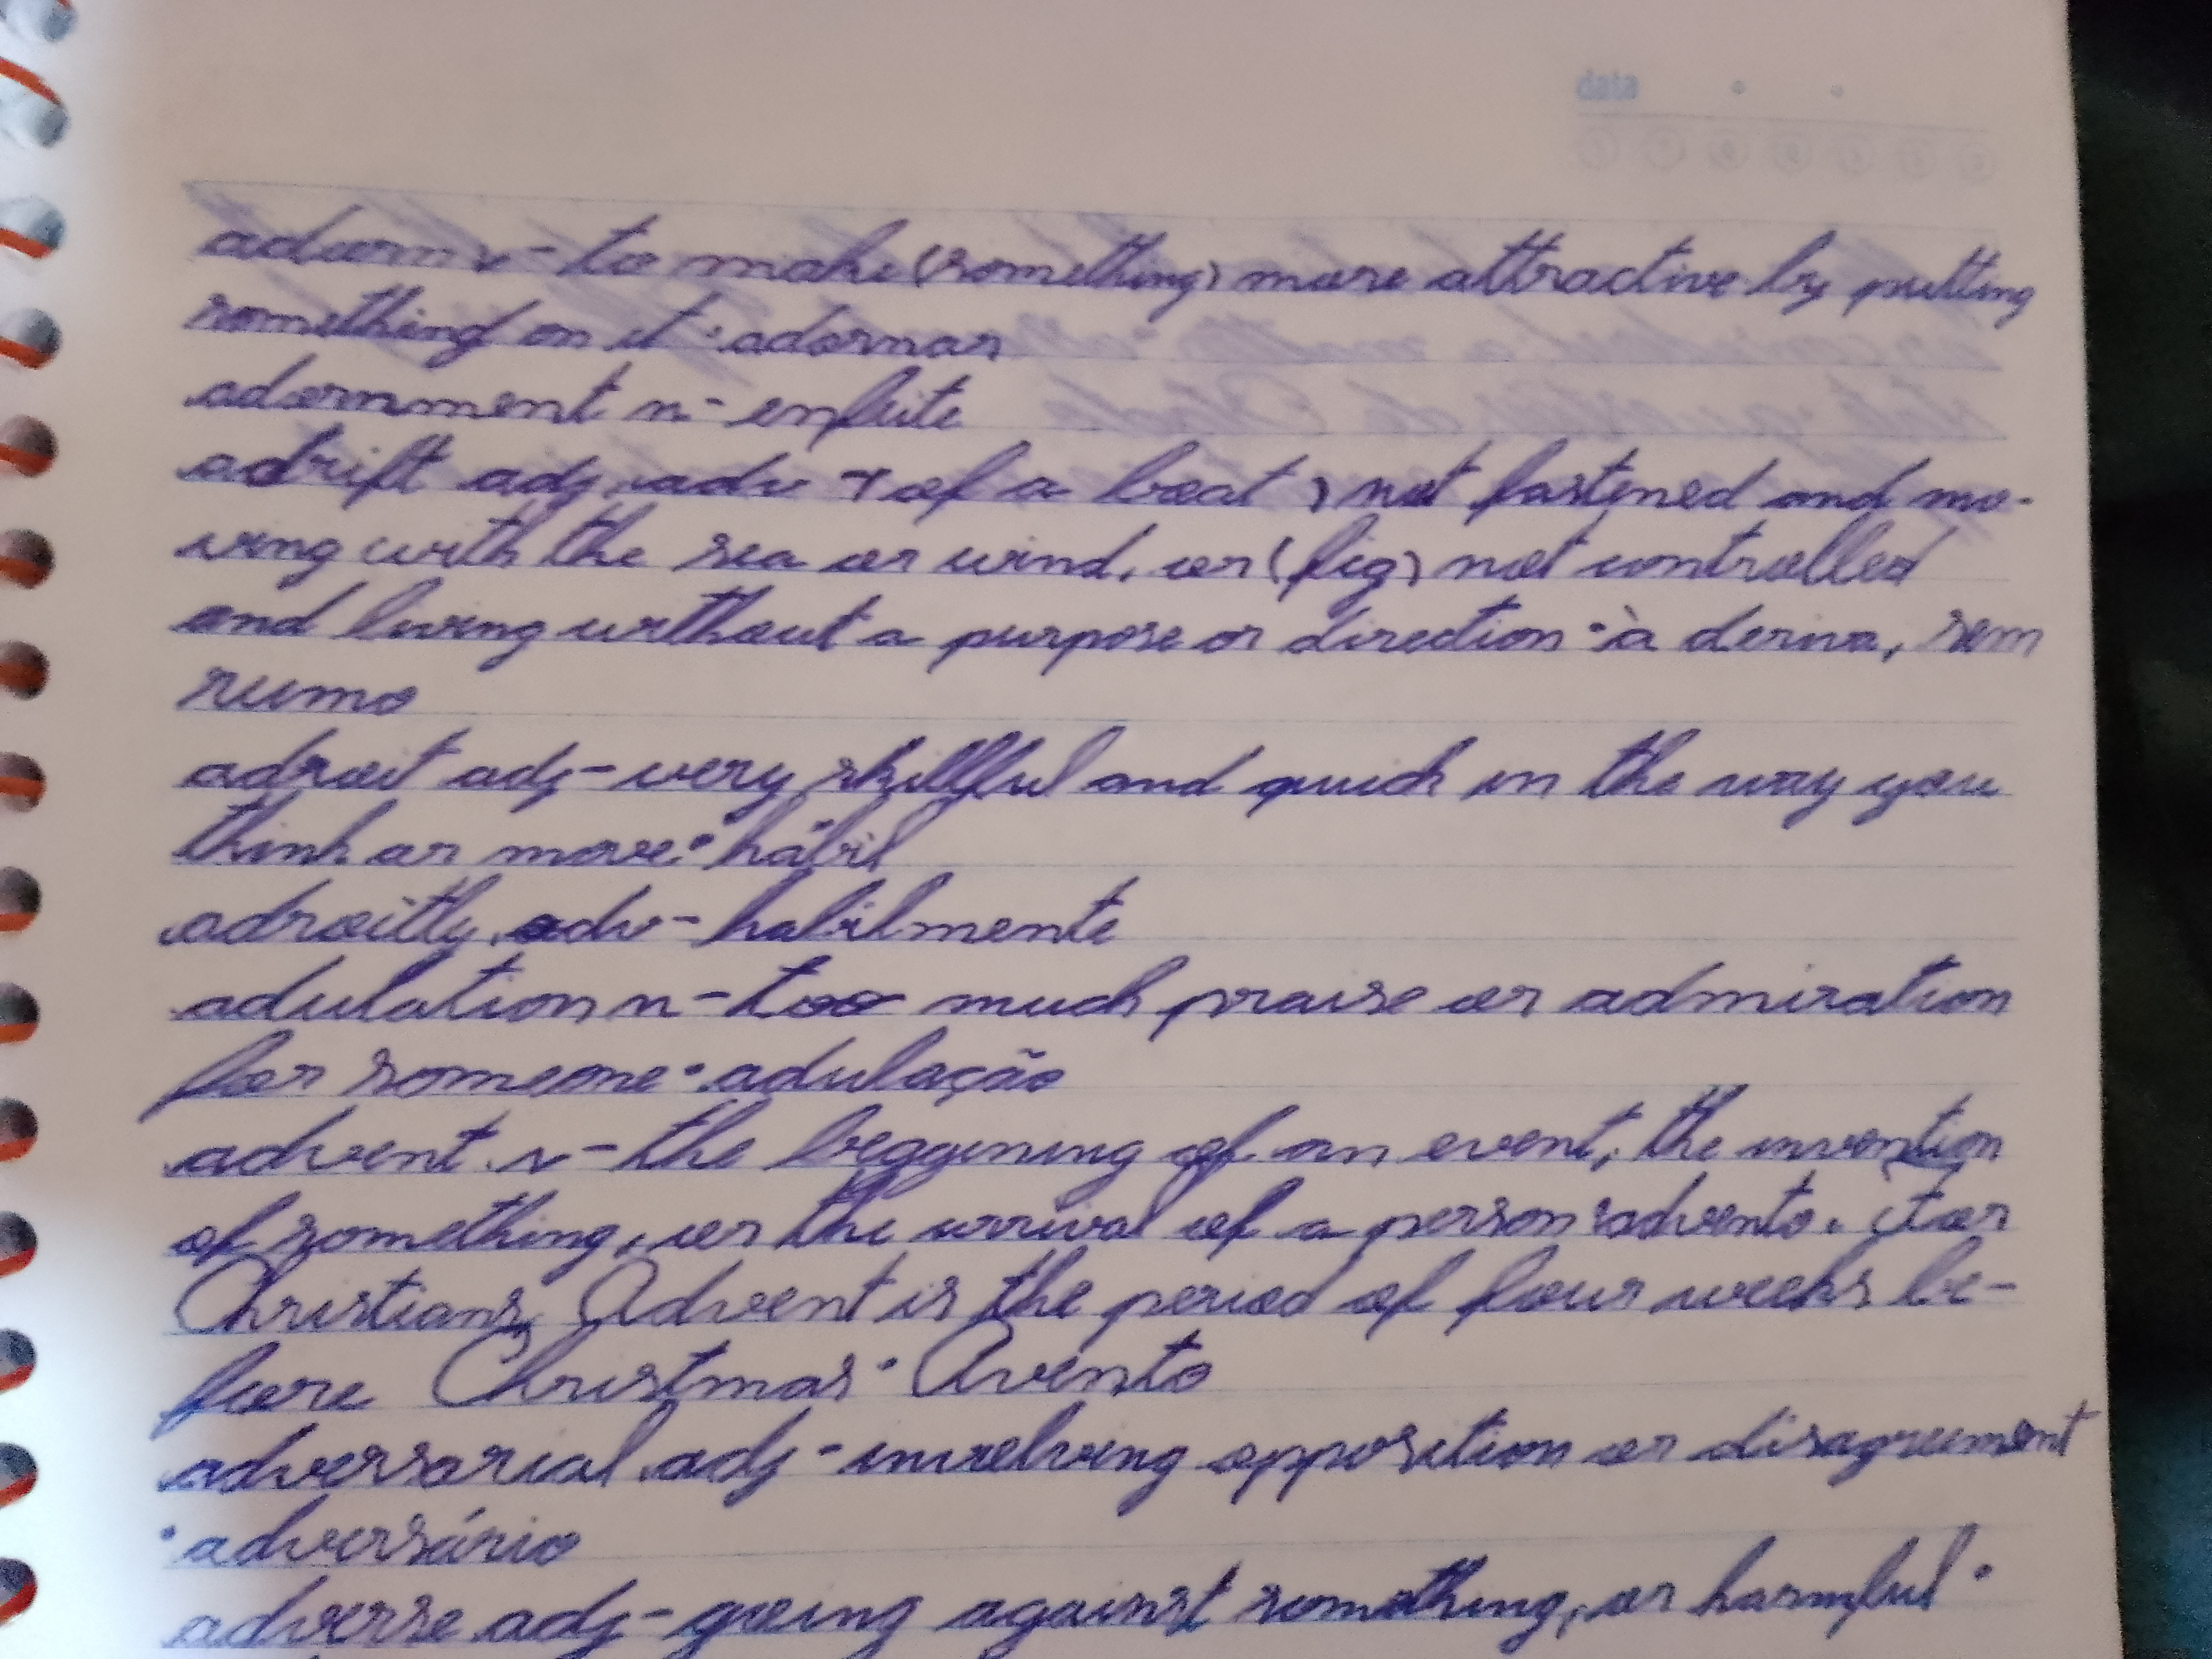 data
adorn v - to make (something) more attractive by putting
something on it • adornar
adornment n - enfeite
adrift adj, adv - (of a boat) not fastened and mo-
ving with the sea or wind, or (fig) not controlled
and living without a purpose or direction • à deriva, sem
rumo
adroit adj - very skillful and quick in the way you
think or move • hábil
adroitly adv - habilmente
adulation n - too much praise or admiration
for someone • adulação
advent n - the beggining of an event, the invention
of something, or the arrival of a person • advento. For
Christians, Advent is the period of four weeks be-
fore Christmas • Avento
adversarial adj - involving opposition or disagreement
• adversário
adverse adj - going against something, or harmful •